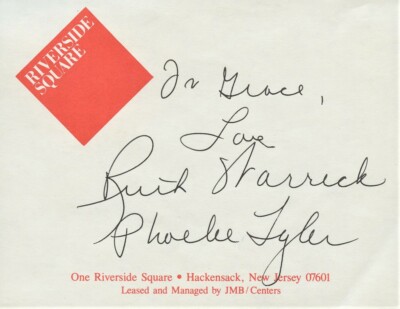 RIVERSIDE
SQUARE
To Grace,
Love
Ruth Warrick
Phoebe Tyler
One Riverside Square • Hackensack, New Jersey 07601
Leased and Managed by JMB/Centers